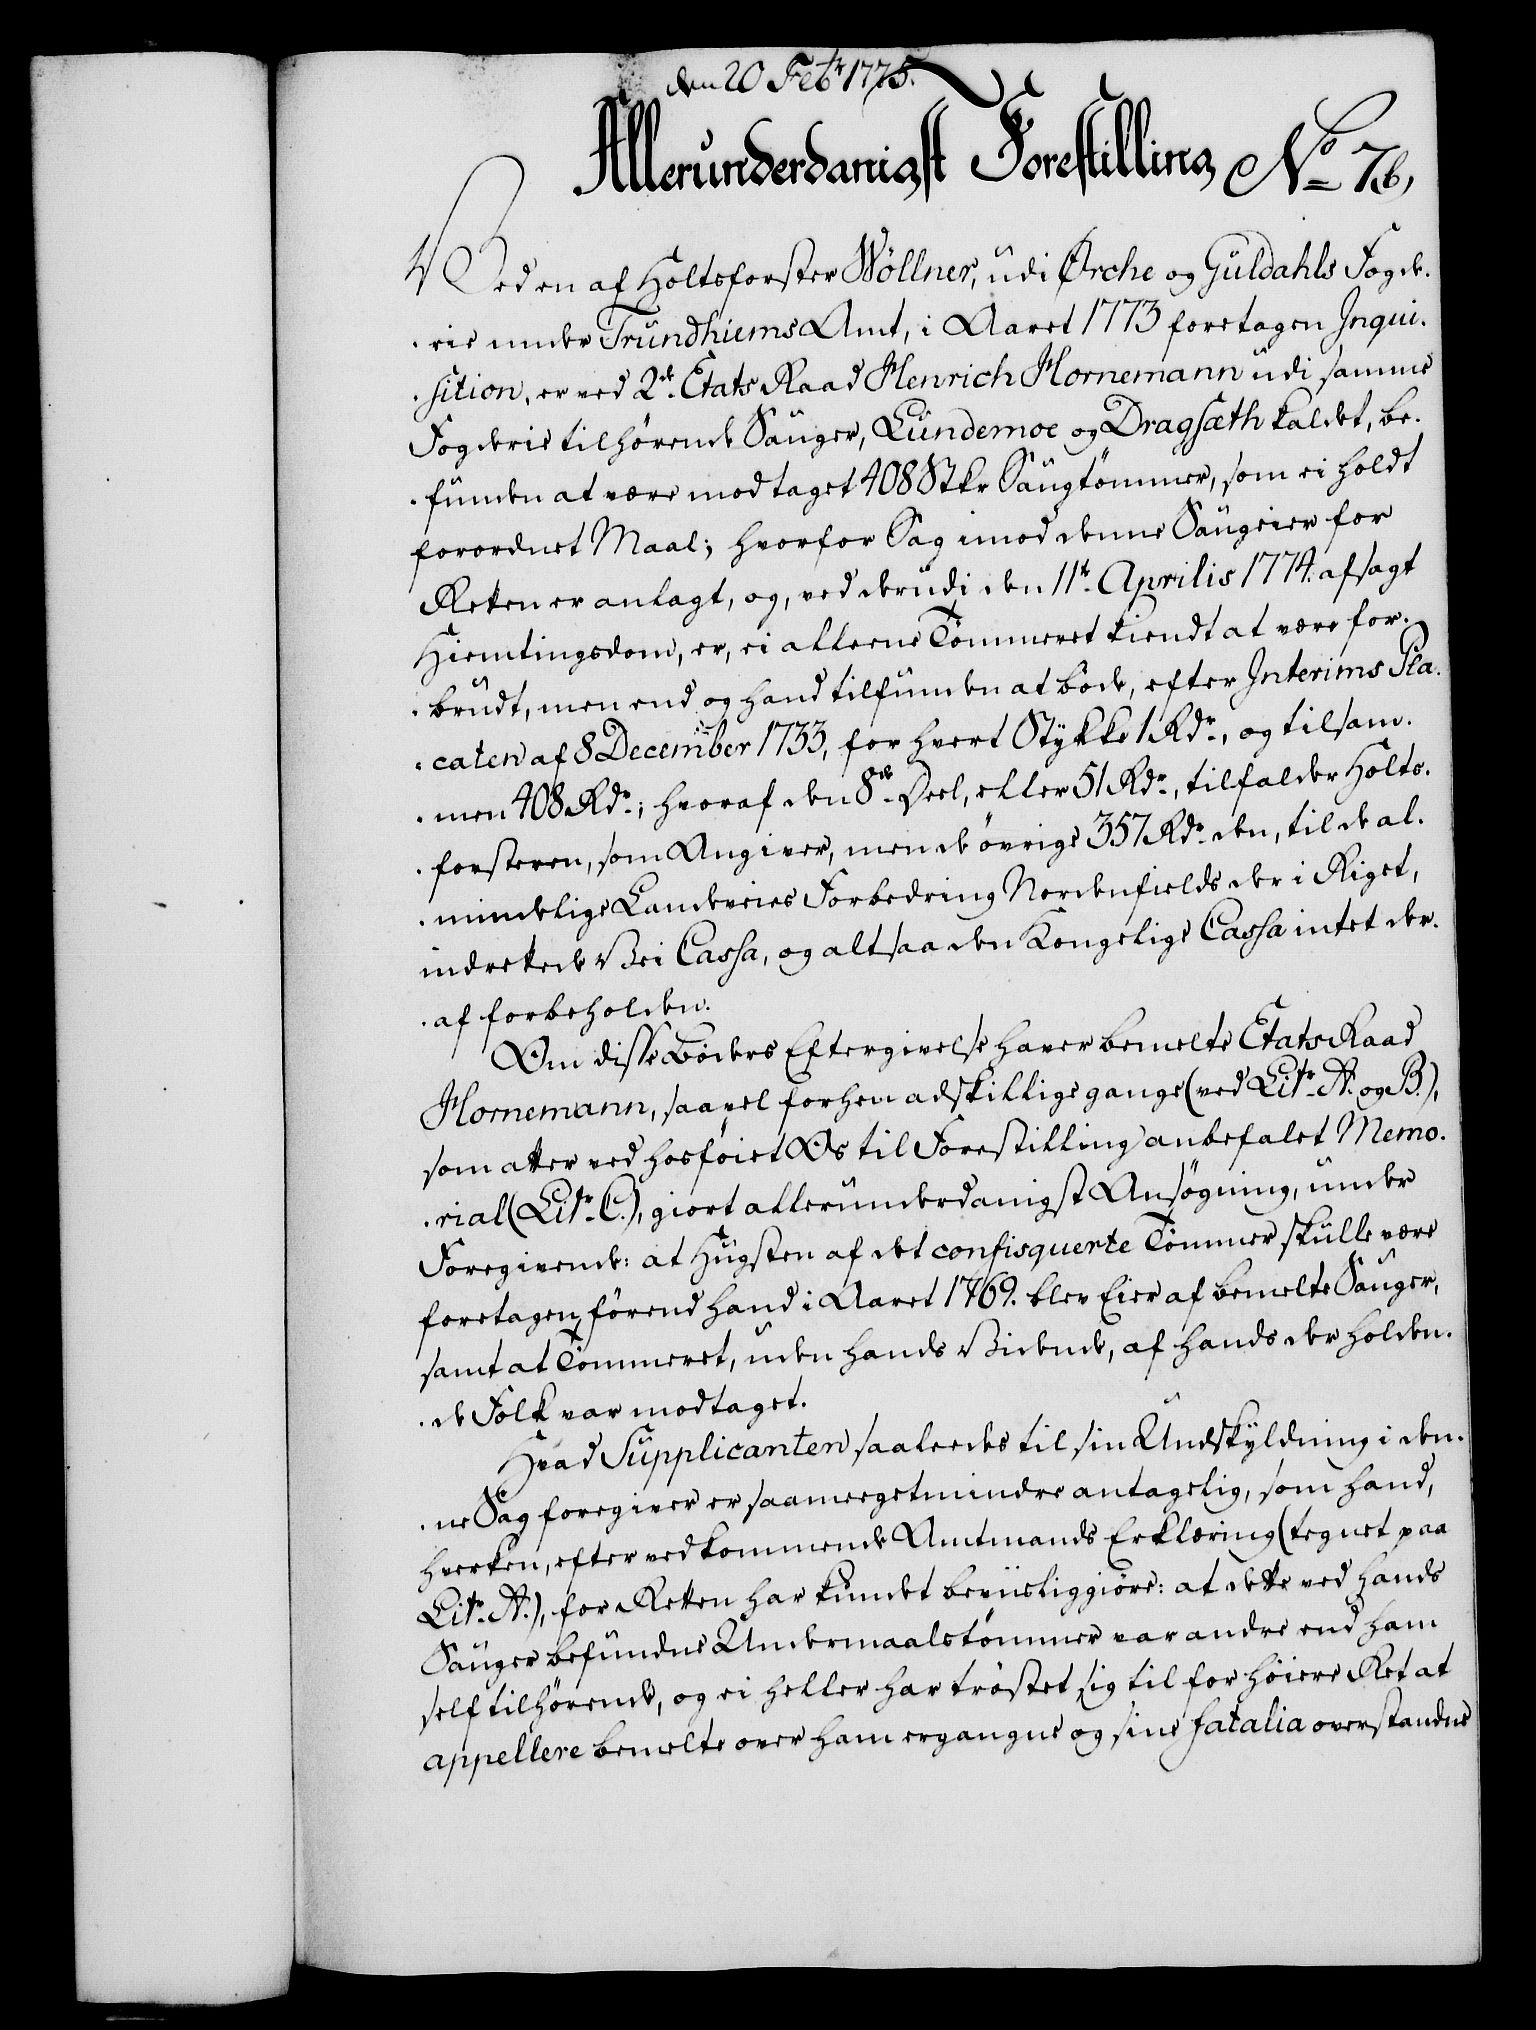 den 20 Febr 1775.
Allerunderdanigst Forestilling No 76,
Ved en af Holtsforster Wöllner, udi Ørche og Guldahls Fogde-
-rie under Trundhiems Amt, i Aaret 1773 foretagen Inqui-
-sition, er ved 2de Etats Raad Henrich Hornemann udi samme
Fogderie tilhørende Sauger, Lundemoe og Dragsæth kaldet, be-
-funden at være modtaget 408 Stkr Saugtömmer, som ei holdt
forordnet Maal; hvorfor Sag imod denne Saugeier for
Retten er anlagt, og, ved derudi den 11te Aprilis 1774. afsagt
Hiemtingsdom, er, ei alleene Tömmeret kiendt at være for-
-brudt, men end og hand tilfunden at böde, efter Interims Pla-
-caten af 8 December 1733, for hvert Stykke 1 Rdr, og tilsam-
-men 408 Rdr; hvoraf den 8de Deel, eller 51 Rdr, tilfalder Holts-
-forsteren, som Angiver, men de övrige 357 Rdr den, til de al-
-mindelige Landeveies Forbedring Nordenfields der i Riget,
indrettede Vei Cassa, og altsaa den Kongelige Cassa intet der-
-af forbeholden.
Om disse Böders Eftergivelse haver bemelte Etats Raad
Hornemann, saavel forhen adskillige gange (ved Litr. A. og B.),
som atter ved hosföiet Os til Forestilling anbefalet Memo-
-rial (Litr. C.), giort allerunderdanigst Ansögning, under
Foregivende: at Hugsten af det confisquerte Tömmer skulle være
foretagen, förend hand i Aaret 1769. blev Eier af bemelte Sauger,
samt at Tömmeret, uden hands Vidende, af hands der holden-
-de Folk var modtaget.
Hvad Supplicanten saaledes til sin Undskyldning i den-
-ne Sag foregiver er saameget mindre antagelig, som hand,
hverken, efter vedkommende Amtmands Erklæring (tegnet paa
Litr. A.), for Retten har kundet beviisliggiöre: at dette ved hands
Sauger befundne Undermaalstömmer var andre end ham
self tilhörende, og ei heller har tröstet sig til for höiere Ret at
appellere bemelte over ham ergangne og sine fatalia overstandne